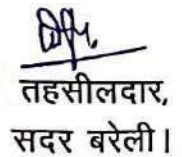 तहसीलदार,
सदर बरेली।